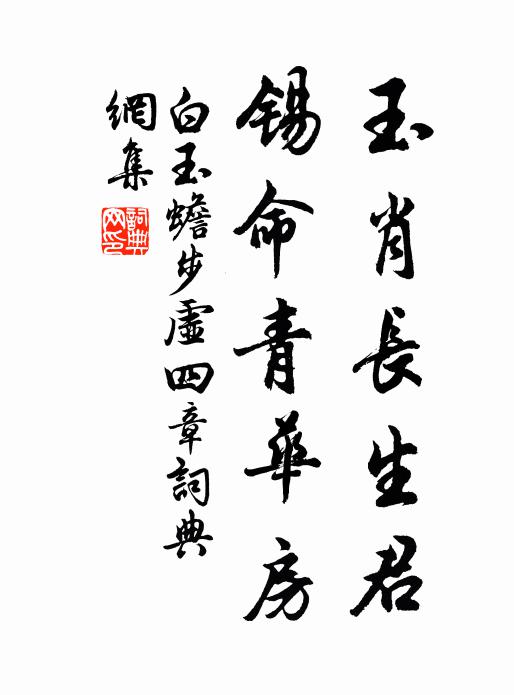 玉肖長生君
錫命青華房
白玉蟾步虛四章詞典
網集
詞典網印